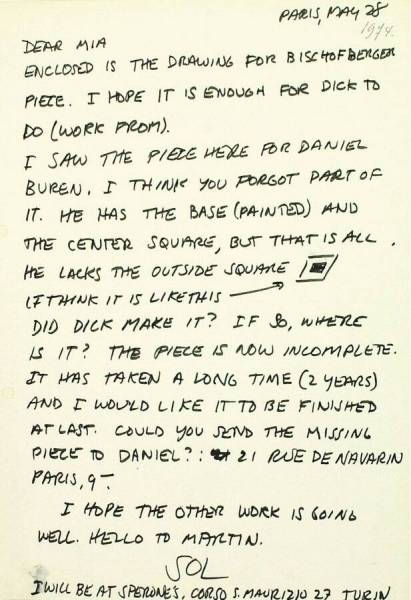 PARIS, MAY 28
1974.
DEAR MIA
ENCLOSED IS THE DRAWING FOR BISCHOFBERGER
PIECE. I HOPE IT IS ENOUGH FOR DICK TO
DO (WORK FROM).
I SAW THE PIECE HERE FOR DANIEL
BUREN, I THINK YOU FORGOT PART OF
IT. HE HAS THE BASE (PAINTED) AND
THE CENTER SQUARE, BUT THAT IS ALL.
HE LACKS THE OUTSIDE SQUARE
I THINK IT IS LIKE THIS
DID DICK MAKE IT? IF SO, WHERE
IS IT? THE PIECE IS NOW INCOMPLETE.
IT HAS TAKEN A LONG TIME (2 YEARS)
AND I WOULD LIKE IT TO BE FINISHED
AT LAST. COULD YOU SEND THE MISSING
PIECE TO DANIEL?: 21 RUE DE NAVARIN
PARIS, 9-.
I HOPE THE OTHER WORK IS GOING
WELL. HELLO TO MARTIN.
SOL
I WILL BE AT SPERONES, CORSO S. MAURIZIO 27 TURIN